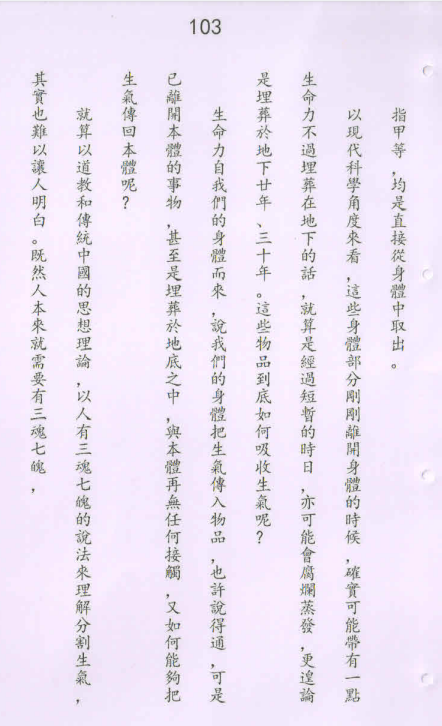 103
指甲等，均是直接從身體中取出。
以現代科學角度來看，這些身體部分剛剛離開身體的時候，確實可能帶有一點
生命力不過埋葬在地下的話，就算是經過短暫的時日，亦可能會腐爛蒸發，更遑論
是埋葬於地下廿年、三十年。這些物品到底如何吸收生氣呢？
生命力自我們的身體而來，說我們的身體把生氣傳入物品，也許說得通，可是
已離開本體的事物，甚至是埋葬於地底之中，與本體再無任何接觸，又如何能夠把
生氣傳回本體呢？
就算以道教和傳統中國的思想理論，以人有三魂七魄的說法來理解分割生氣，
其實也難以讓人明白。既然人本來就需要有三魂七魄，